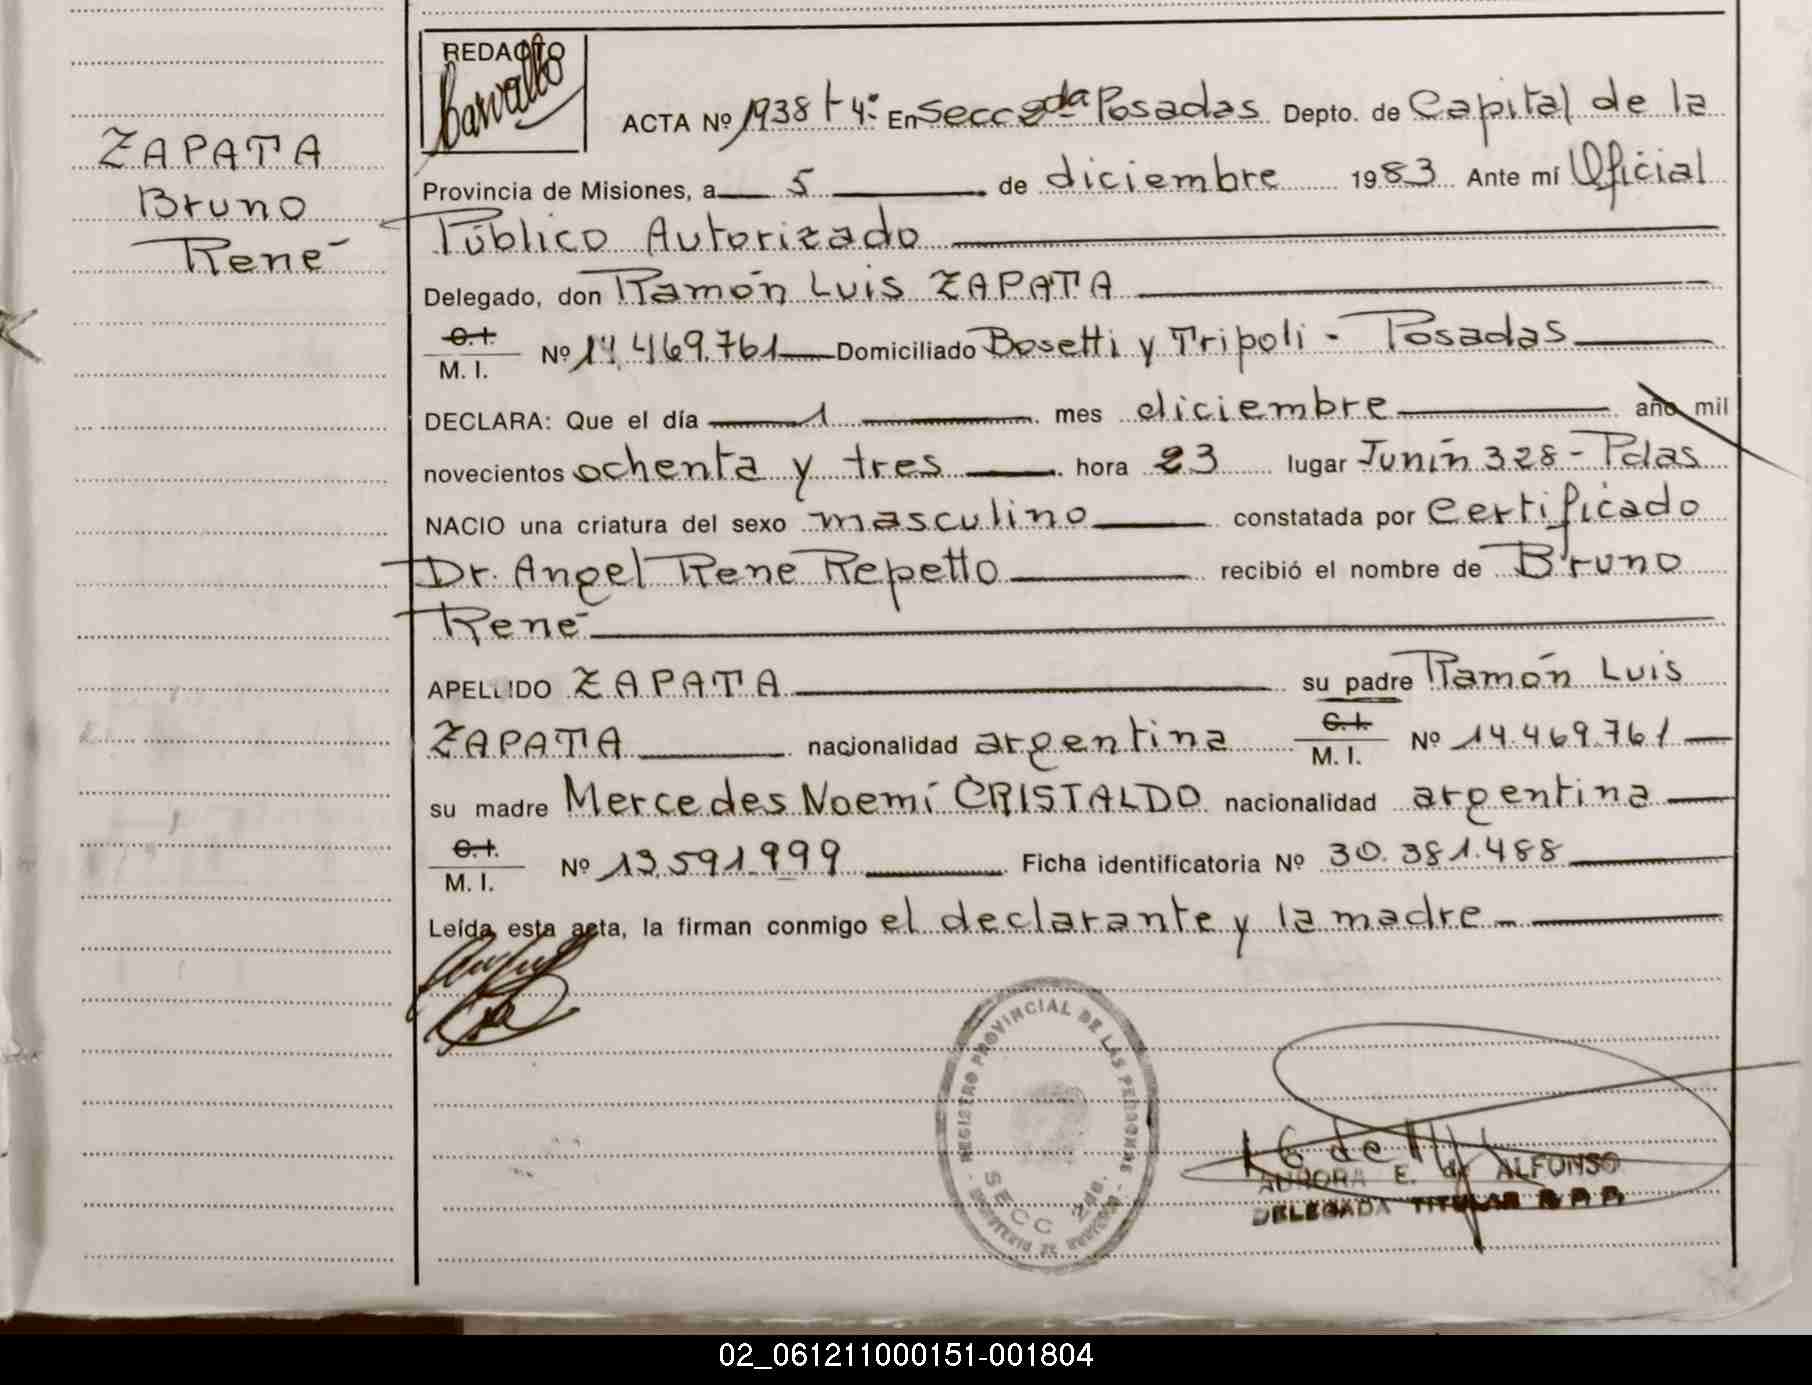 REDACTO
Carvallo
ACTA Nº 1938 t 4º En Secc 2da Posadas Depto. de Capital de la
ZAPATA
Bruno
René
Provincia de Misiones, a 5 de diciembre 1983 Ante mí Oficial
Público Autorizado
Delegado, don Ramón Luis ZAPATA
C.I.
M. I. Nº 14.469.761 Domiciliado Bosetti y Tripoli - Posadas
DECLARA: Que el día 1 mes diciembre año mil
novecientos ochenta y tres hora 23 lugar Junín 328 - Pdas
NACIO una criatura del sexo masculino constatada por certificado
Dr. Angel Rene Repetto recibió el nombre de Bruno
René
APELLIDO ZAPATA su padre Ramón Luis
ZAPATA nacionalidad argentina C.I. M. I. Nº 14.469.761
su madre Mercedes Noemí CRISTALDO nacionalidad argentina
C.I.
M. I. Nº 13.591.999 Ficha identificatoria Nº 30.381.488
Leída esta acta, la firman conmigo el declarante y la madre
REGISTRO PROVINCIAL DE LAS PERSONAS
SECC 2da.
AURORA E. de ALFONSO
DELEGADA TITULAR R.P.P.
02_061211000151-001804